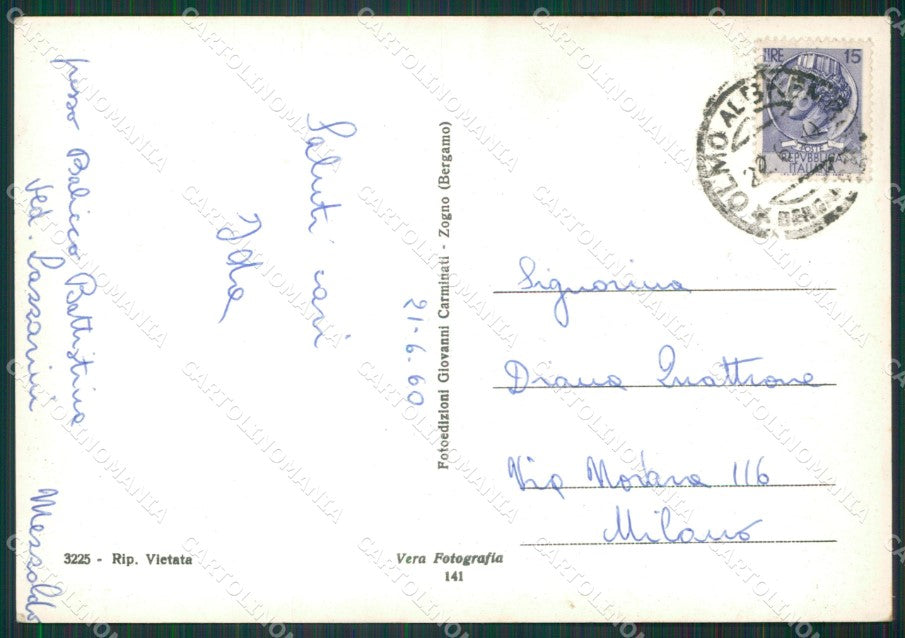 presso Belicco Battistina
Ved. Lazzarini Mezzoldo
Saluti cari
Ida
21-6-60
Fotoedizioni Giovanni Carminati - Zogno (Bergamo)
LIRE 15
POSTE
REPVBBLICA
ITALIANA
OLMO AL
Signorina
Diana Quattrone
Via 116
Milano
3225 - Rip. Vietata
Vera Fotografia
141
CARTOLINOMANIA